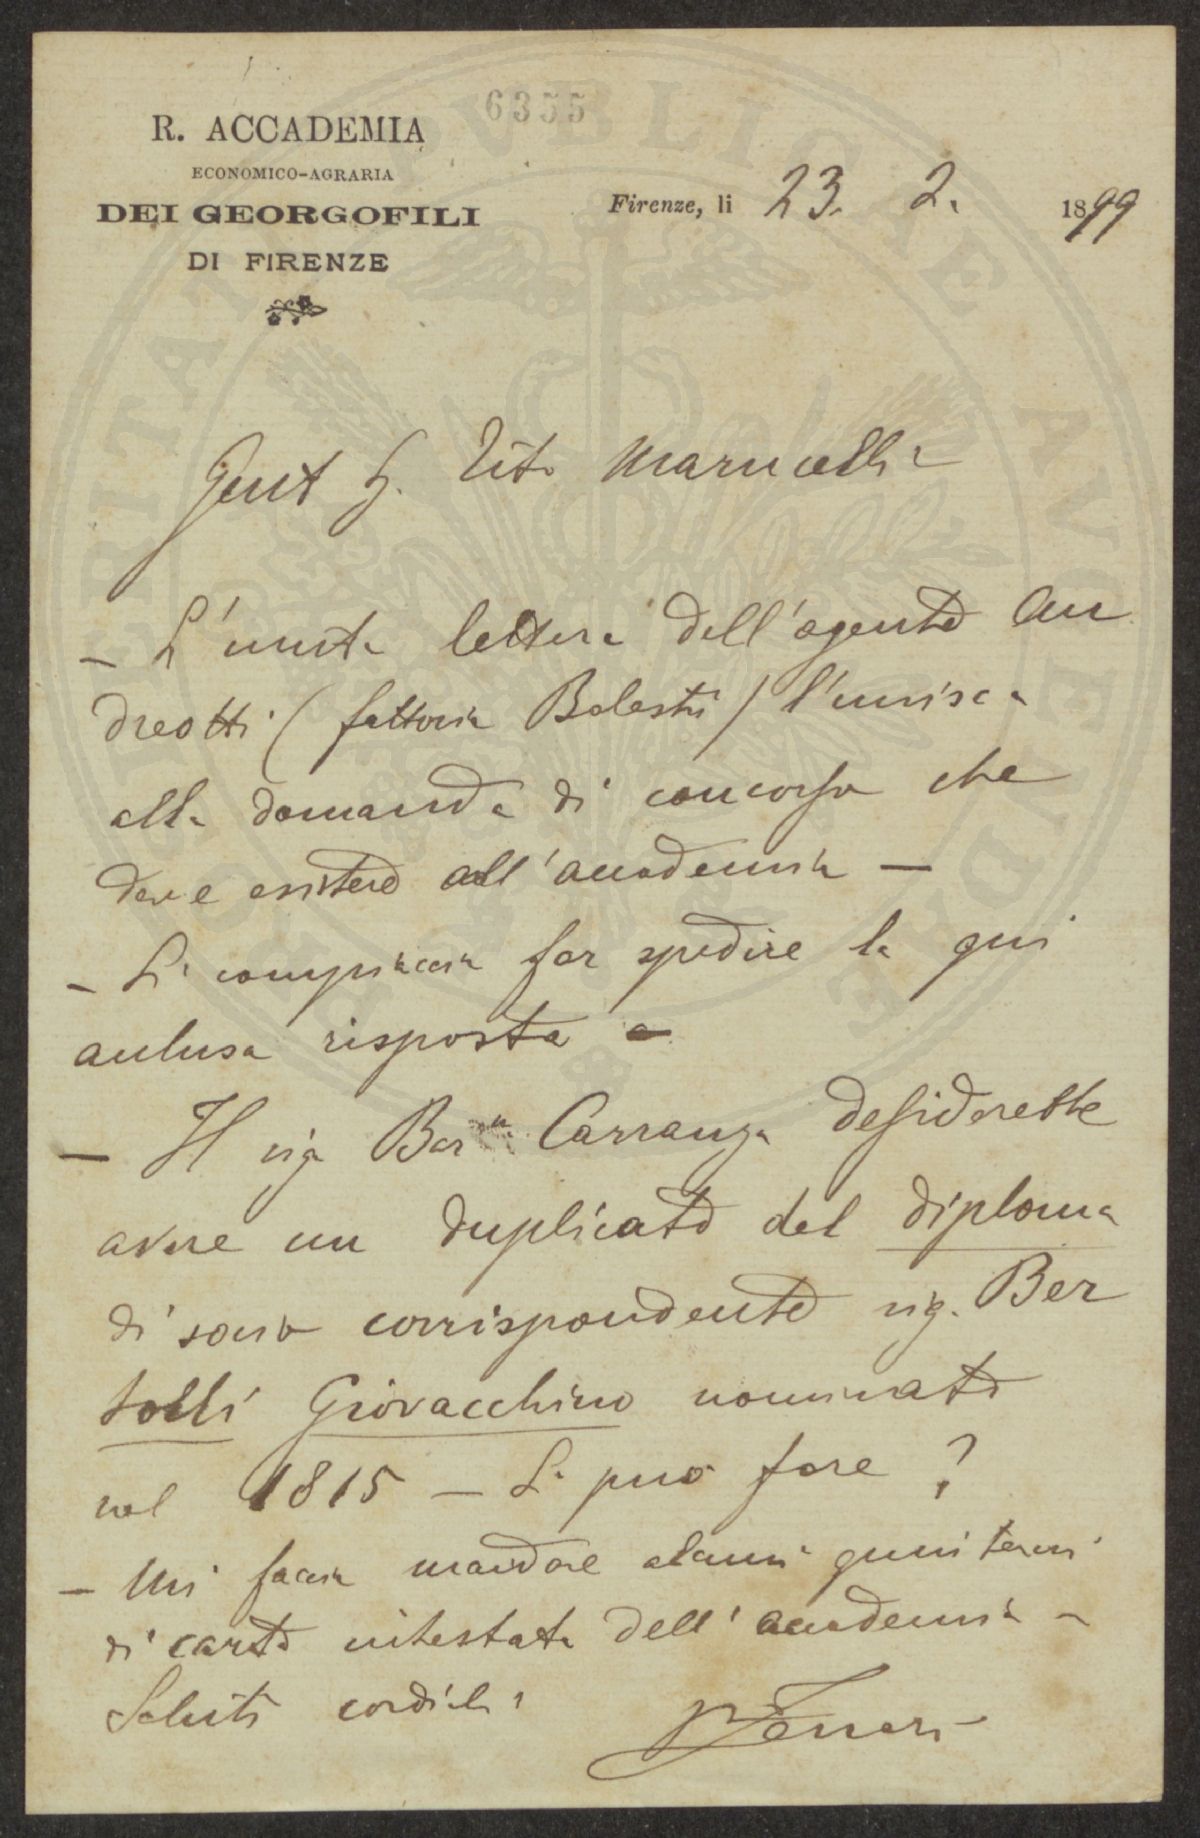 6355
R. ACCADEMIA
ECONOMICO-AGRARIA
DEI GEORGOFILI
DI FIRENZE
Firenze, li 23. 2. 1899
PROSPERITATI PUBLICAE AUGENDAE
Gent S. Tito Marucelli
- L'unita lettera dell'agente An
dreotti (fattoria Balestri) l'unisca
alla domanda di concorso che
deve esistere all'accademia —
- Si compiaccia far spedire la qui
acclusa risposta —
- Il sig Bar Carranza desiderebbe
avere un duplicato del diploma
di socio corrispondente sig. Ber
tolli Giovacchino nominato
nel 1815 — Si può fare ?
- Mi faccia mandare alcuni quinterni
di carta intestata dell'accademia -
Saluti cordiali
Ferrari